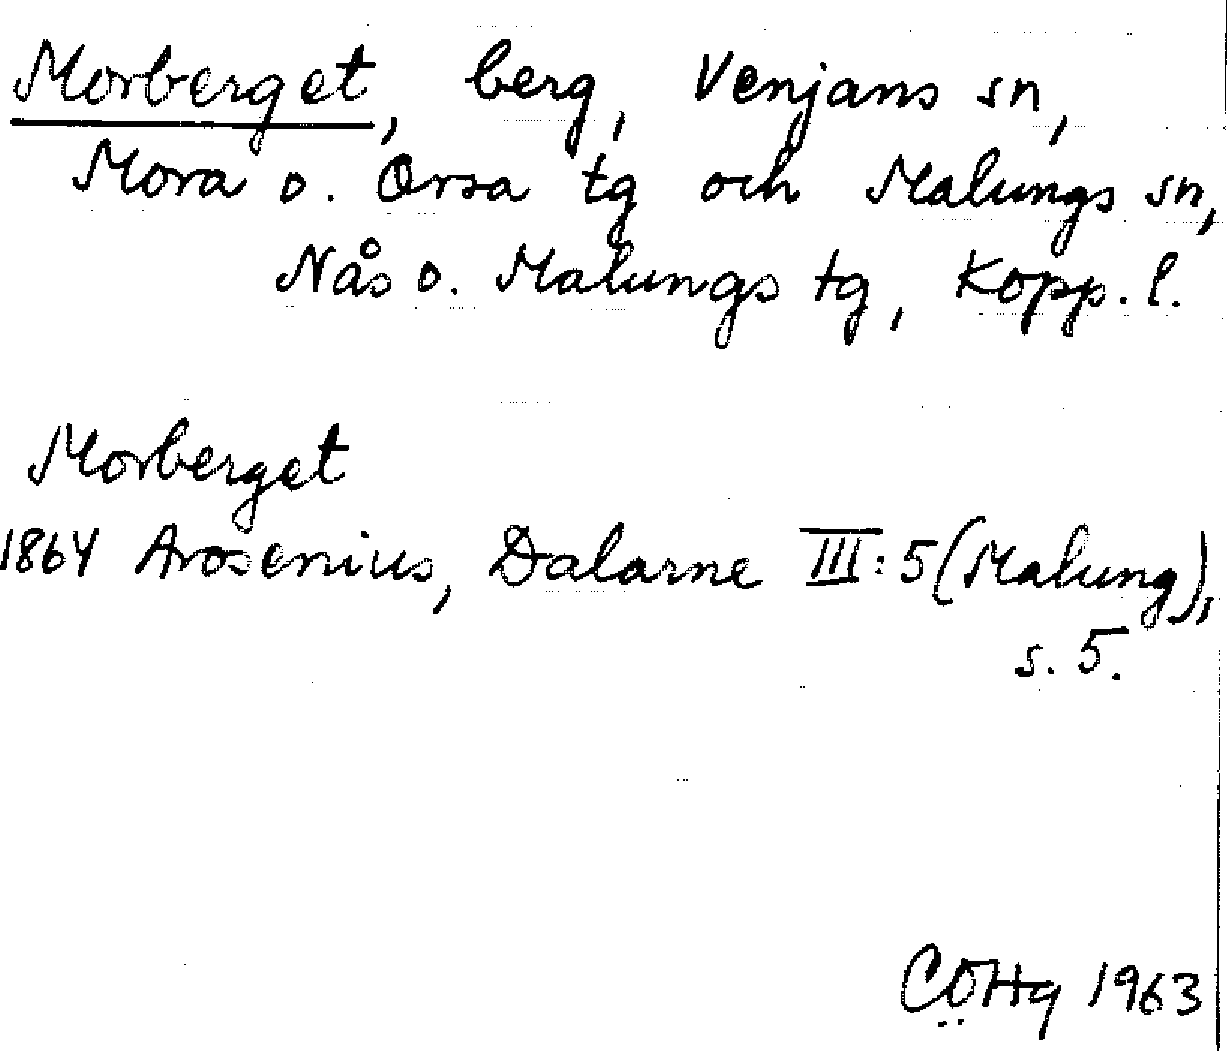 Morberget, berg, Venjans sn,
Mora o. Orsa tg och Malungs sn,
Nås o. Malungs tg, Kopp. l.
Morberget
1864 Arosenius, Dalarne III:5 (Malung),
s. 5.
1963